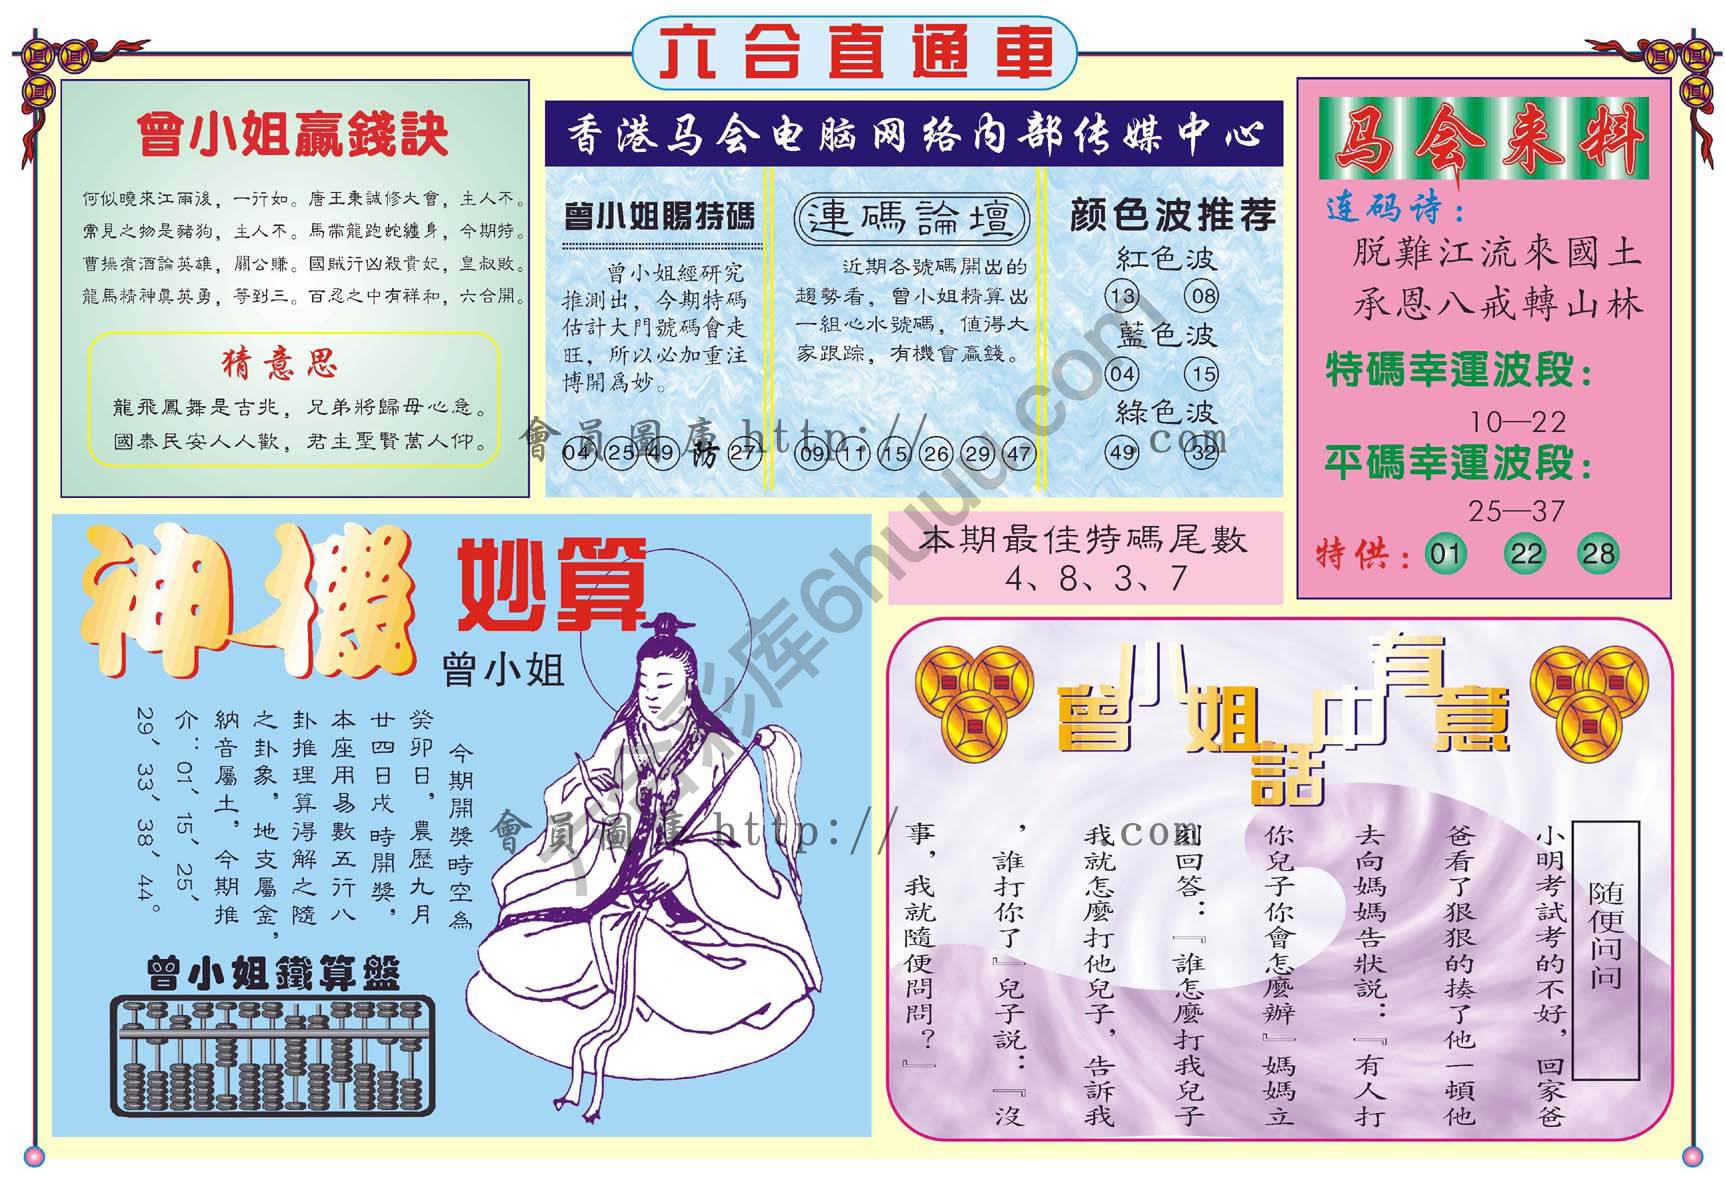 六合直通車
曾小姐贏錢訣
何似曉來江雨後，一行如。唐王秉誠修大會，主人不。
常見之物是豬狗，主人不。馬帶龍跑蛇纏身，今期特。
曹操煮酒論英雄，關公賺。國賊行凶殺貴妃，皇叔敗。
龍馬精神真英勇，等到三。百忍之中有祥和，六合開。
猜意思
龍飛鳳舞是吉兆，兄弟將歸母心急。
國泰民安人人歡，君主聖賢萬人仰。
香港马会电脑网络内部传媒中心
曾小姐賜特碼
曾小姐經研究
推測出，今期特碼
估計大門號碼會走
旺，所以必加重注
博開爲妙。
04 25 49 防 27
連碼論壇
近期各號碼開出的
趨勢看，曾小姐精算出
一組心水號碼，值得大
家跟踪，有機會贏錢。
09 11 15 26 29 47
颜色波推荐
紅色波
13 08
藍色波
04 15
綠色波
49 32
马会来料
连码诗：
脱難江流來國土
承恩八戒轉山林
特碼幸運波段：
10—22
平碼幸運波段：
25—37
特供： 01 22 28
會員圖庫 http:// .com
六合彩库6huuu.com
神機妙算
曾小姐
今期開獎時空為
癸卯日，農歷九月
廿四日戌時開獎，
本座用易數五行八
卦推理算得解之隨
之卦象，地支屬金，
納音屬土，今期推
介：01、15、25、
29、33、38、44。
曾小姐鐵算盤
本期最佳特碼尾數
4、8、3、7
曾小姐話中有意
随便问问
小明考試考的不好，回家爸
爸看了狠狠的揍了他一頓他
去向媽媽告狀説：『有人打
你兒子你會怎麼辦』媽媽立
刻回答：『誰怎麼打我兒子
我就怎麼打他兒子，告訴我
，誰打你了』兒子説：『沒
事，我就隨便問問？』
會員圖庫 http:// .com